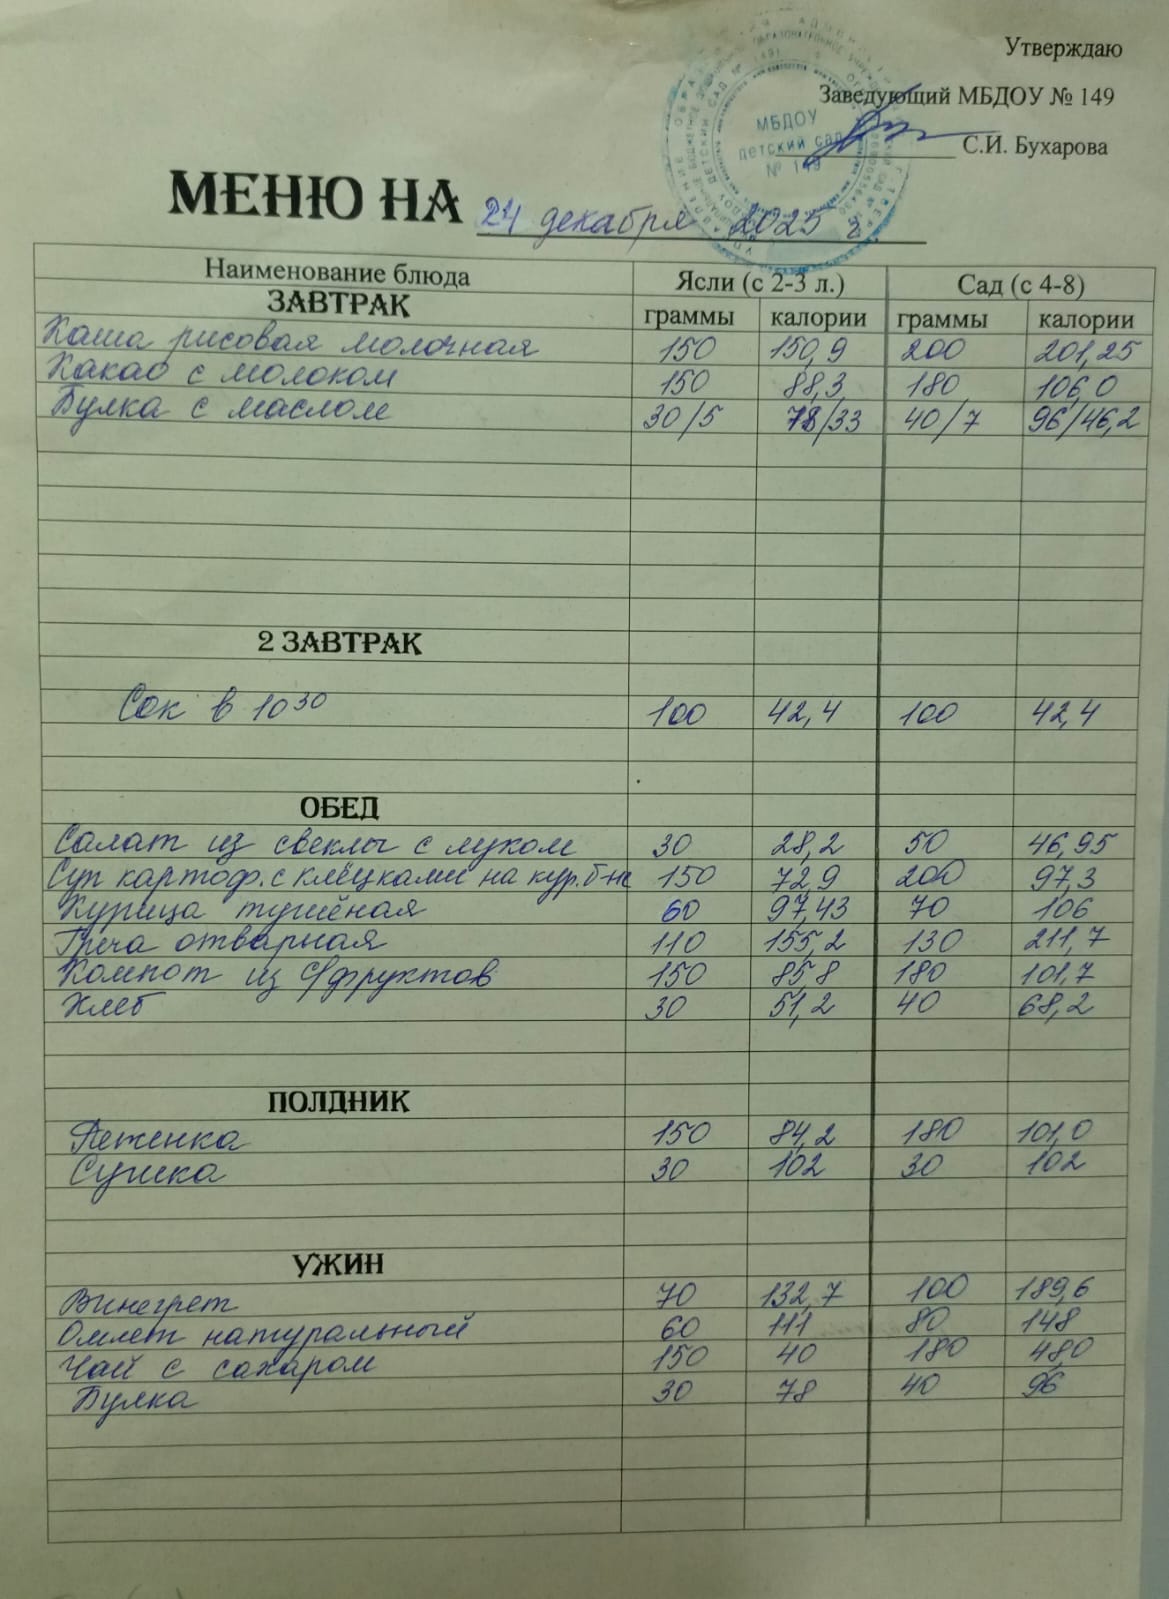 Утверждаю
Заведующий МБДОУ № 149
С.И. Бухарова
МБДОУ
детский сад
№ 149
МЕНЮ НА 24 декабря 2025 г
Наименование блюда Ясли (с 2-3 л.) Сад (с 4-8)
ЗАВТРАК граммы калории граммы калории
Каша рисовая молочная 150 150,9 200 201,25
Какао с молоком 150 88,3 180 106,0
Булка с маслом 30/5 78/33 40/7 96/46,2
2 ЗАВТРАК
Сок в 10 30 100 42,4 100 42,4
ОБЕД
Салат из свеклы с луком 30 28,2 50 46,95
Суп картоф. с клёцками на кур. б-не 150 72,9 200 97,3
Курица тушёная 60 97,43 70 106
Греча отварная 110 155,2 130 211,7
Компот из с/фруктов 150 85,8 180 101,7
Хлеб 30 51,2 40 68,2
ПОЛДНИК
Ряженка 150 84,2 180 101,0
Сушка 30 102 30 102
УЖИН
Винегрет 70 132,7 100 189,6
Омлет натуральный 60 111 80 148
Чай с сахаром 150 40 180 48,0
Булка 30 78 40 96